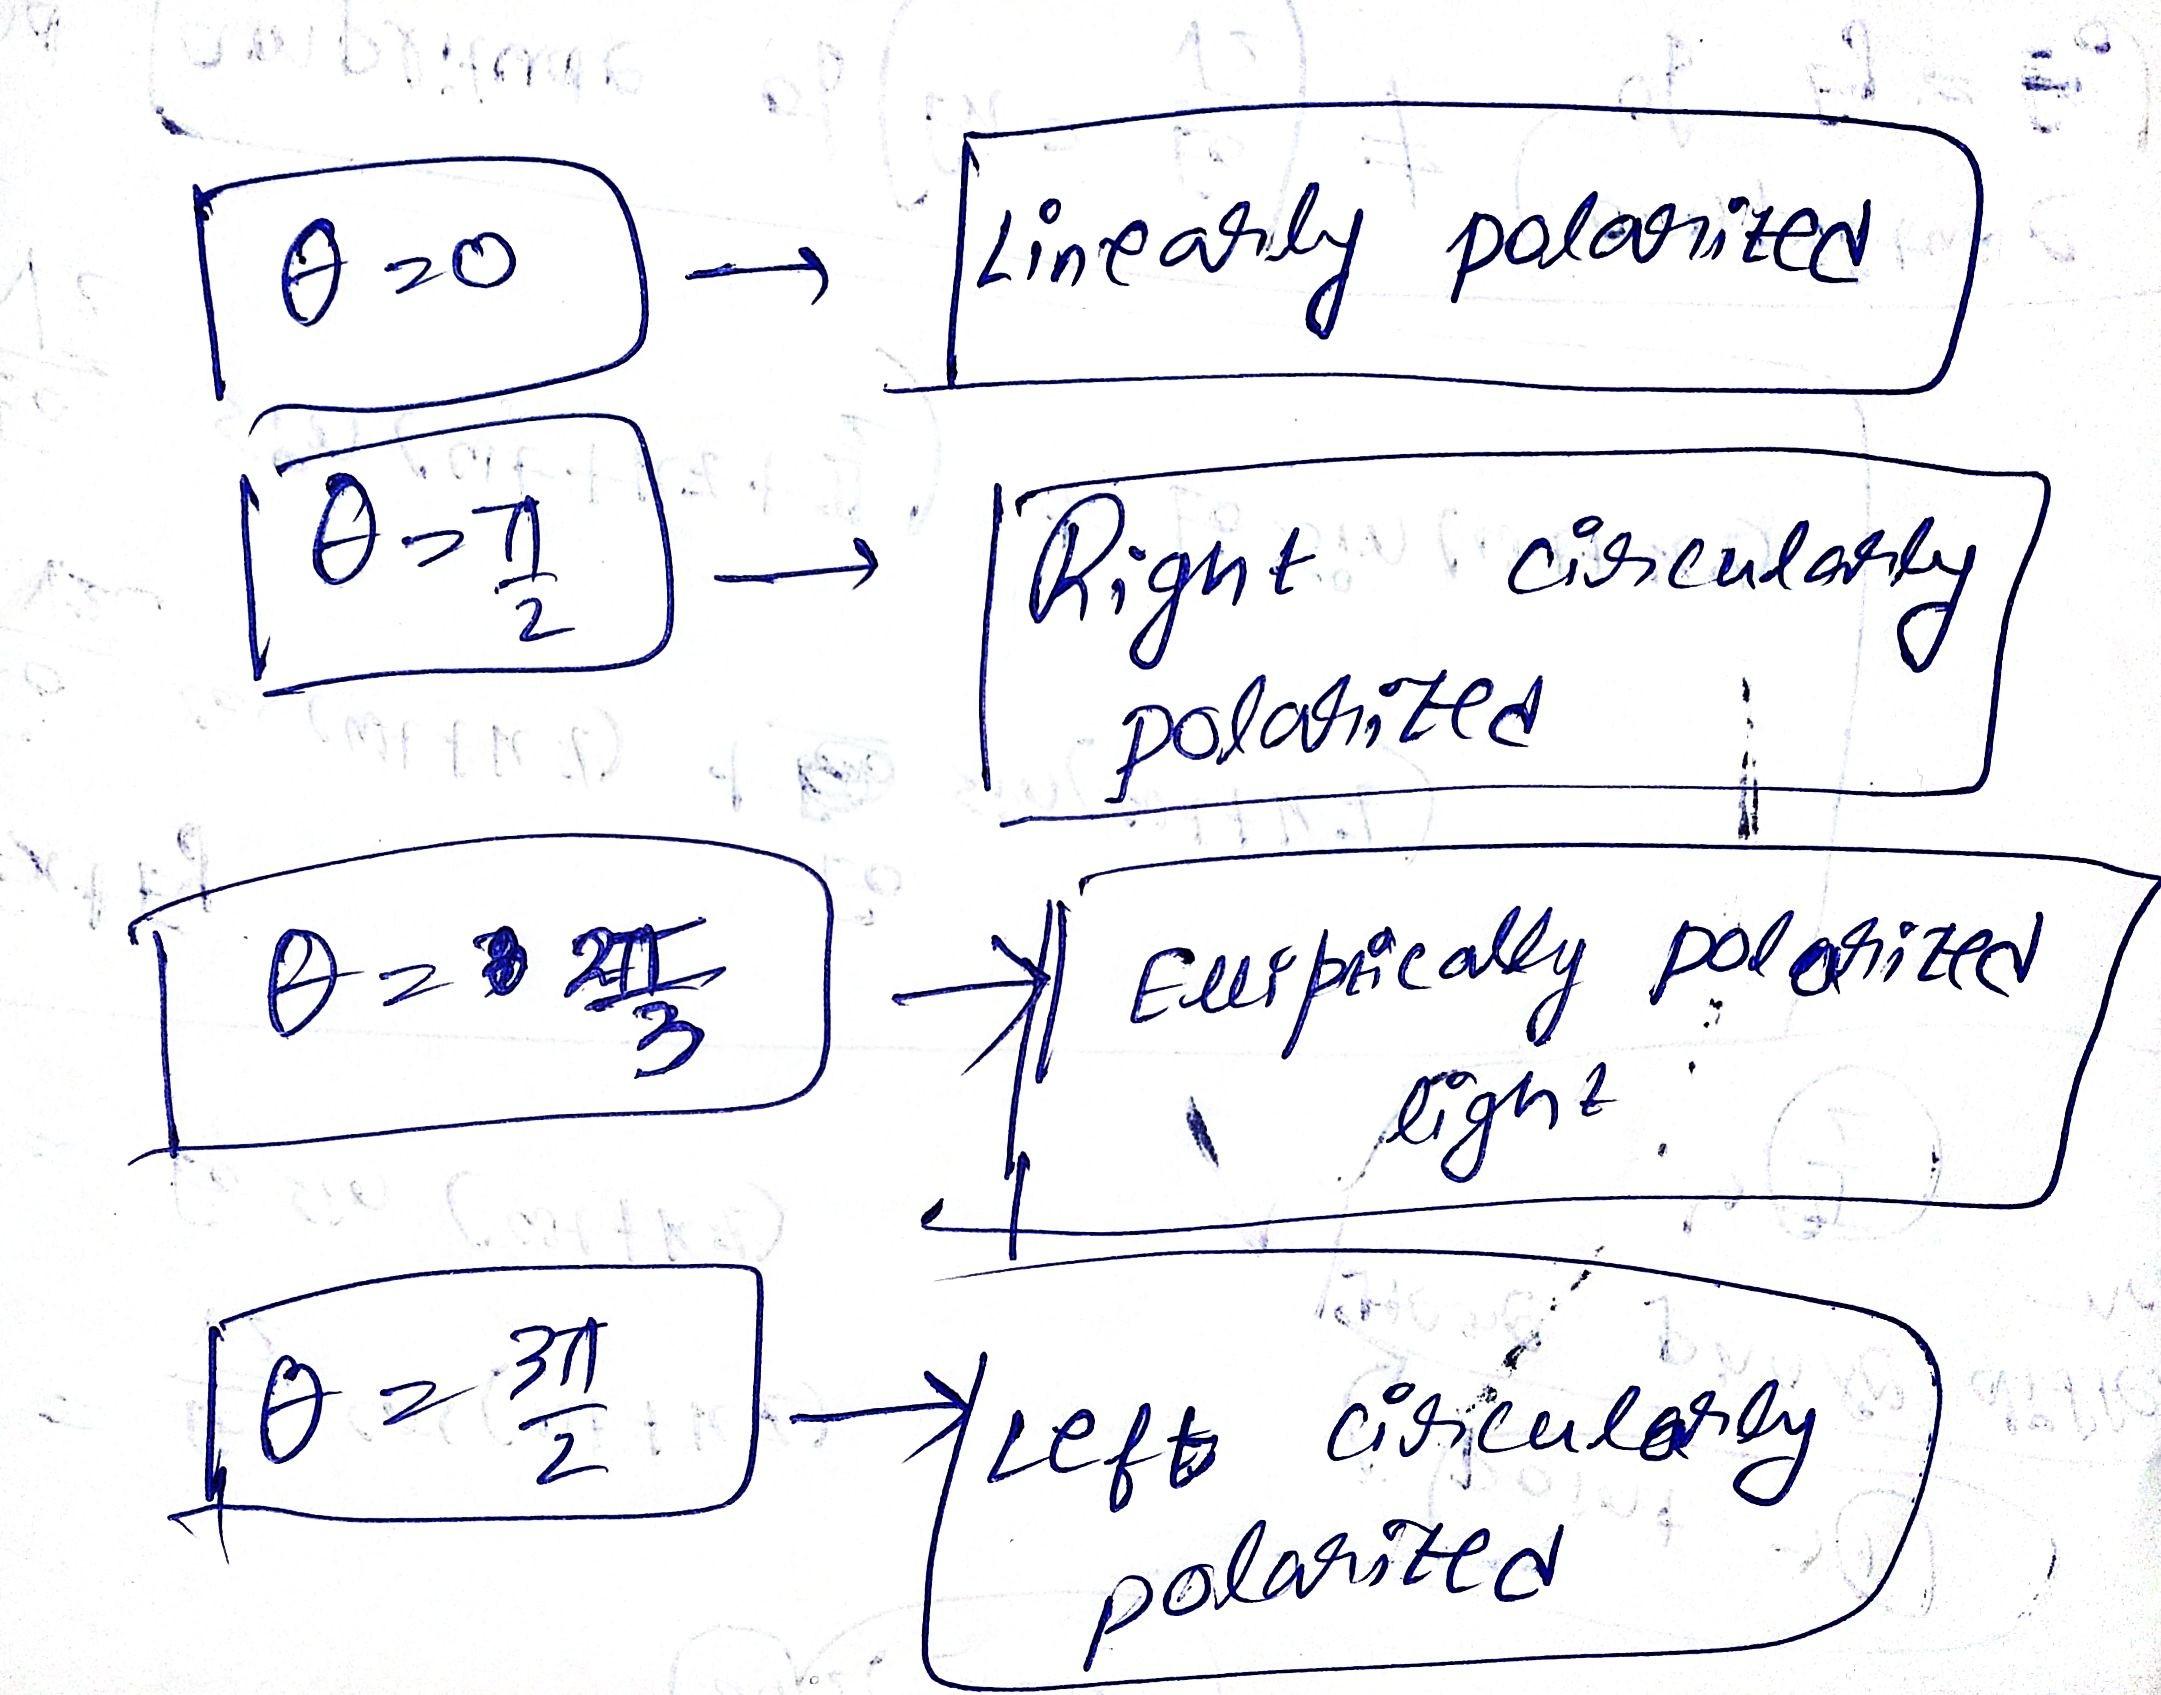 θ = 0 → Linearly polarized
θ = π/2 → Right circularly
polarized
θ = 2π/3 → Elliptically polarized
light
θ = 3π/2 → Left circularly
polarized